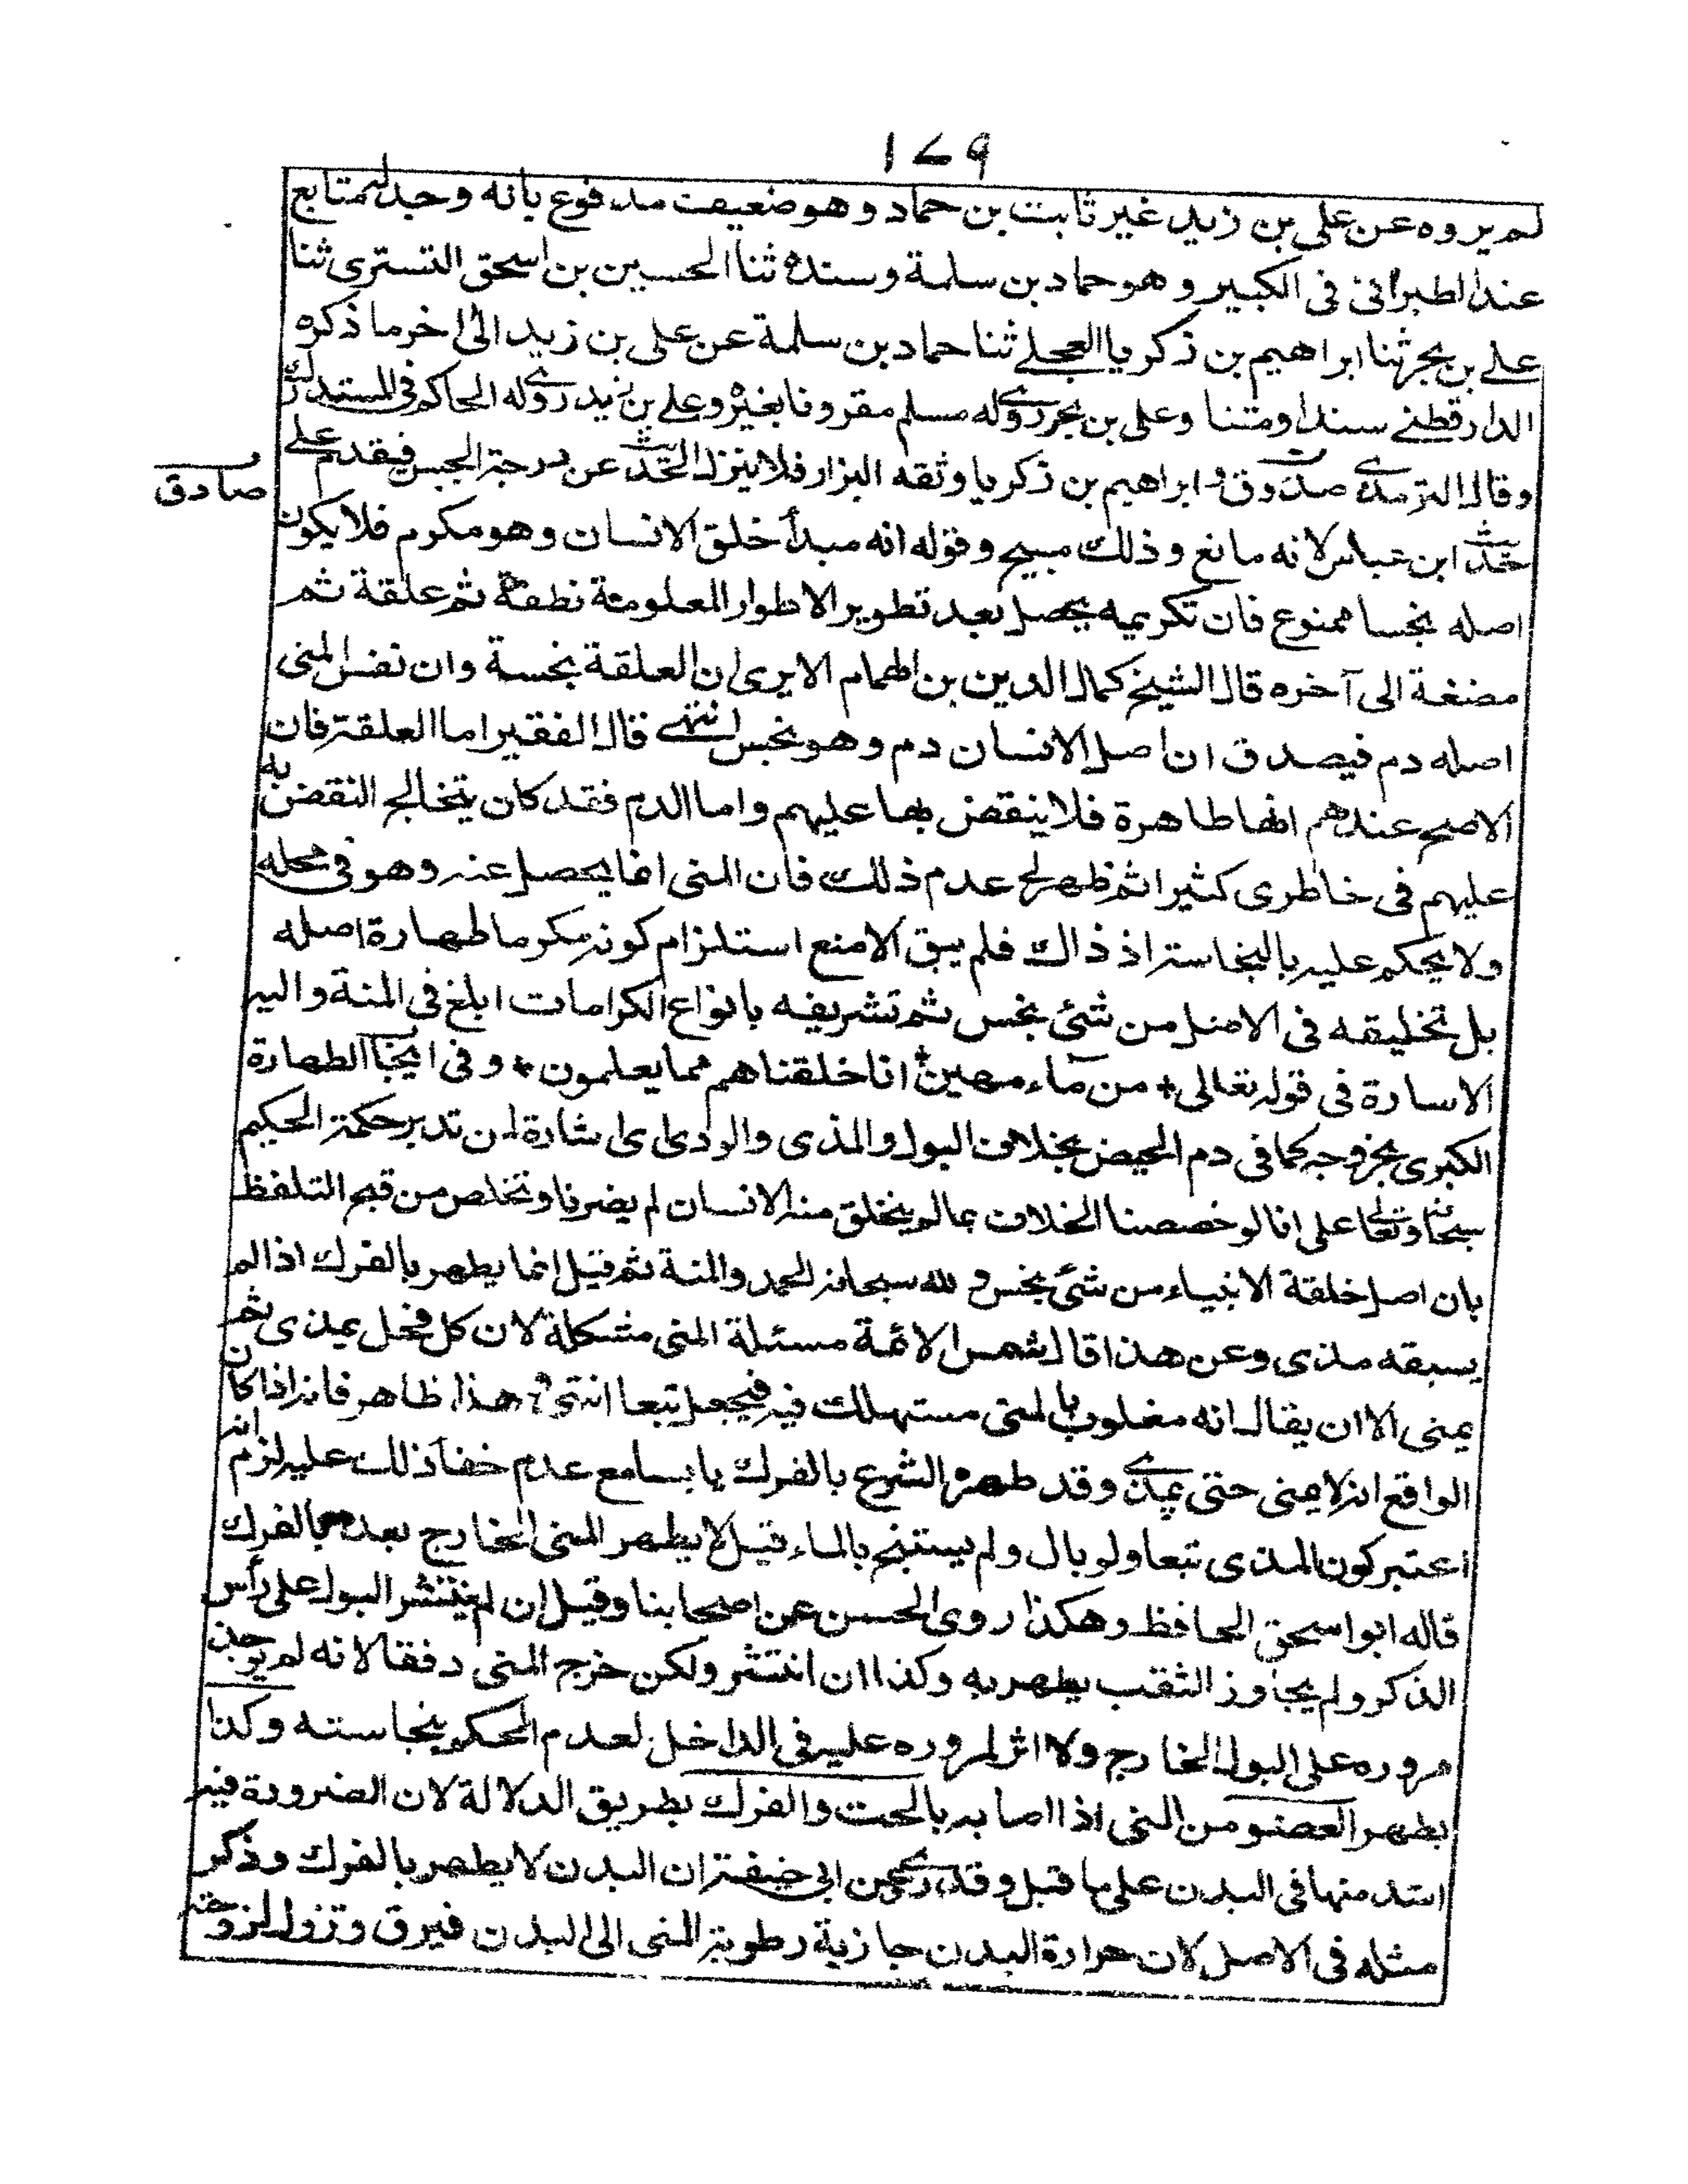 ١٧٩
لم يروه عن على بن زيد غير ثابت بن حماد وهو ضعيف مدفوع بانه وجد له متابع
عند الطبرانى فى الكبير وهو حماد بن سلمة وسنده ثنا الحسين بن اسحق التسترى ثنا
على بن بحر ثنا ابراهيم بن زكريا العجلى ثنا حماد بن سلمة عن على بن زيد الى اخر ما ذكره
الدارقطنى سندا ومتنا وعلى بن بحر روى له مسلم مقرونا بغيره وعلى بن زيد روى له الحاكم فى المستدرك
وقال الترمذى صدوق وابراهيم بن زكريا وثقه البزار فلا ينزل الحديث عن درجة الحسن فيقدم على
صادق
حديث ابن عباس لانه مانع وذلك مبيح وقوله انه مبدأ خلق الانسان وهو مكرم فلا يكون
اصله نجسا ممنوع فان تكريمه يحصل بعد تطوير الاطوار المعلومة نطفة ثم علقة ثم
مضغة الى آخره قال الشيخ كمال الدين بن الهمام الا يرى ان العلقة نجسة وان نفس المنى
اصله دم فيصدق ان اصل الانسان دم وهو نجس انتهى قال الفقير اما العلقة فان
الاصح عندهم انها طاهرة فلا ينقض بها عليهم واما الدم فقد كان يتخالج النقض به
عليهم فى خاطرى كثيرا ثم ظهر لى عدم ذلك فان المنى انما يحصل عنه وهو فى محله
ولا يحكم عليه بالنجاسة اذ ذاك فلم يبق الا منع استلزام كونه مكرما طهارة اصله
بل تخليقه فى الاصل من شئ نجس ثم تشريفه بانواع الكرامات ابلغ فى المنة واليه
الاسارة فى قوله تعالى * من مآء مهين * انا خلقناهم مما يعلمون * وفى ايجاب الطهارة
الكبرى بخروجه كما فى دم الحيض بخلاف البول والمذى والودى اى اشارة لمن تدبر حكمة الحكيم
سبحانه وتعالى على انا لو خصصنا الخلاف بما لم يتخلق منه الانسان لم يضرنا وتخلص من قبح التلفظ
بان اصل خلقة الانبياء من شئ نجس و لله سبحانه الحمد والمنة ثم قيل انما يطهر بالفرك اذا لم
يسبقه مذى وعن هذا قال شمس الائمة مسئلة المنى مشكلة لان كل فحل يمذى ثم
يمنى الا ان يقال انه مغلوب بالمنى مستهلك فيه فيجعل تبعا انتهى وهذا ظاهر فانه اذا كان
الواقع انه لا يمنى حتى يمذى وقد طهره الشرع بالفرك يابسا مع عدم خفآ ذلك عليه لزم انه
اعتبر كون المذى تبعا ولو بال ولم يستنج بالماء قيل لا يطهر المنى الخارج بعده بالفرك
قاله ابو اسحق الحافظ وهكذا روى الحسن عن اصحابنا وقيل ان لم ينتشر البول على رأس
الذكر ولم يجاوز الثقب يطهر به وكذا ان انتشر ولكن خرج المنى دفقا لانه لم يوجد
مروره على البول الخارج ولا اثر لمروره عليه فى الداخل لعدم الحكم بنجاسته وكذا
يطهر العضو من المنى اذا اصابه بالحت والفرك بطريق الدلالة لان الضرورة فيه
اشد منها فى البدن على ما قيل وقد روى عن ابى حنيفة ان البدن لا يطهر بالفرك وذكر
مثله فى الاصل لان حرارة البدن جاذبة رطوبة المنى الى البدن فيرق وتزول لزوجته